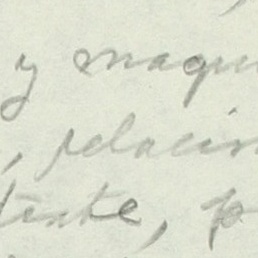 y maqui
, relacion
tente, p